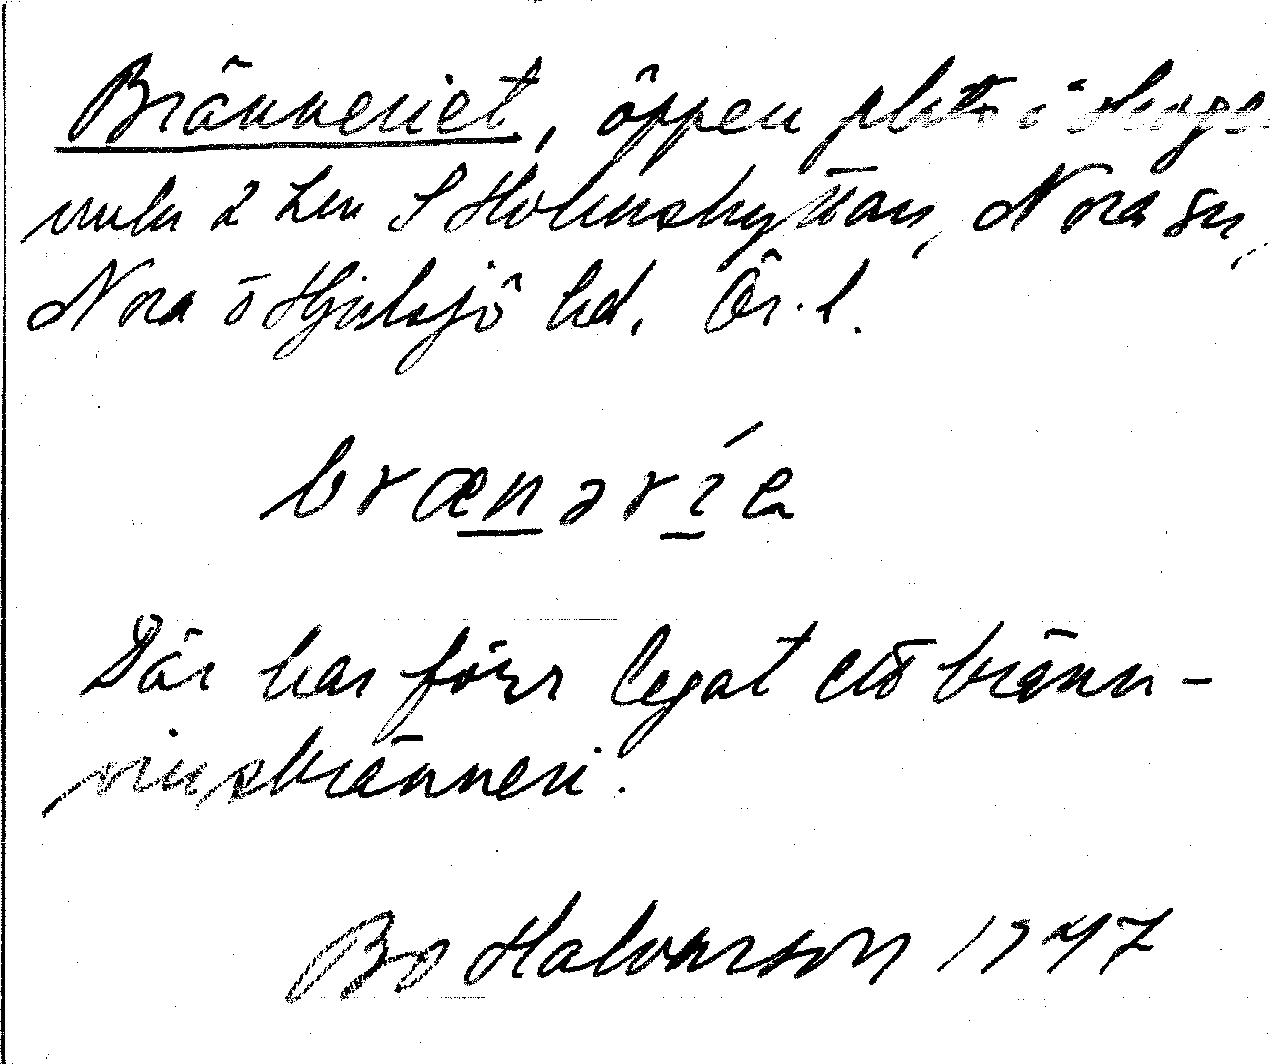 Bränneriet, öppen plats i skogs-
mln 2 km S Holmshyttan, Nora sn,
Nora o Hjulsjö hd. Ör. l.
brænəríe
Där har förr legat ett bränn-
vinsbränneri.
Bo Halvarson 1947